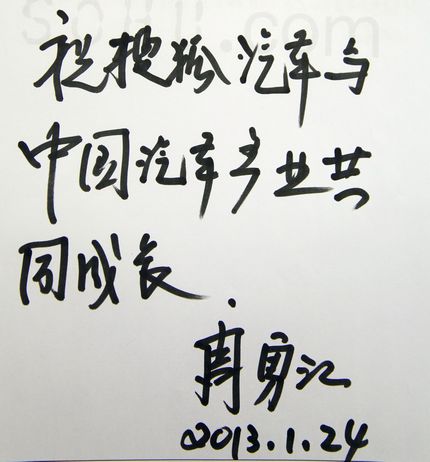 sohu.com
祝搜狐汽车与
中国汽车产业共
同成长.
周勇江
2013.1.24